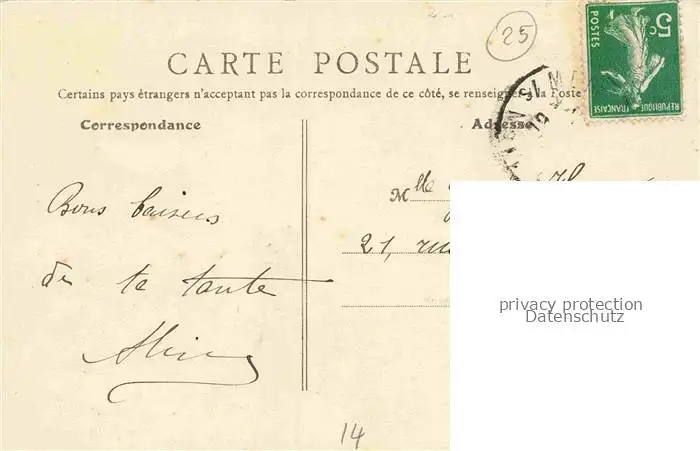 25
5c
POSTES
REPUBLIQUE FRANÇAISE
CARTE POSTALE
Certains pays étrangers n'acceptant pas la correspondance de ce côté, se renseigner à la Poste
Correspondance
Adresse
Mlle
21, rue
Bons baisers
de ta tante
privacy protection
Datenschutz
14